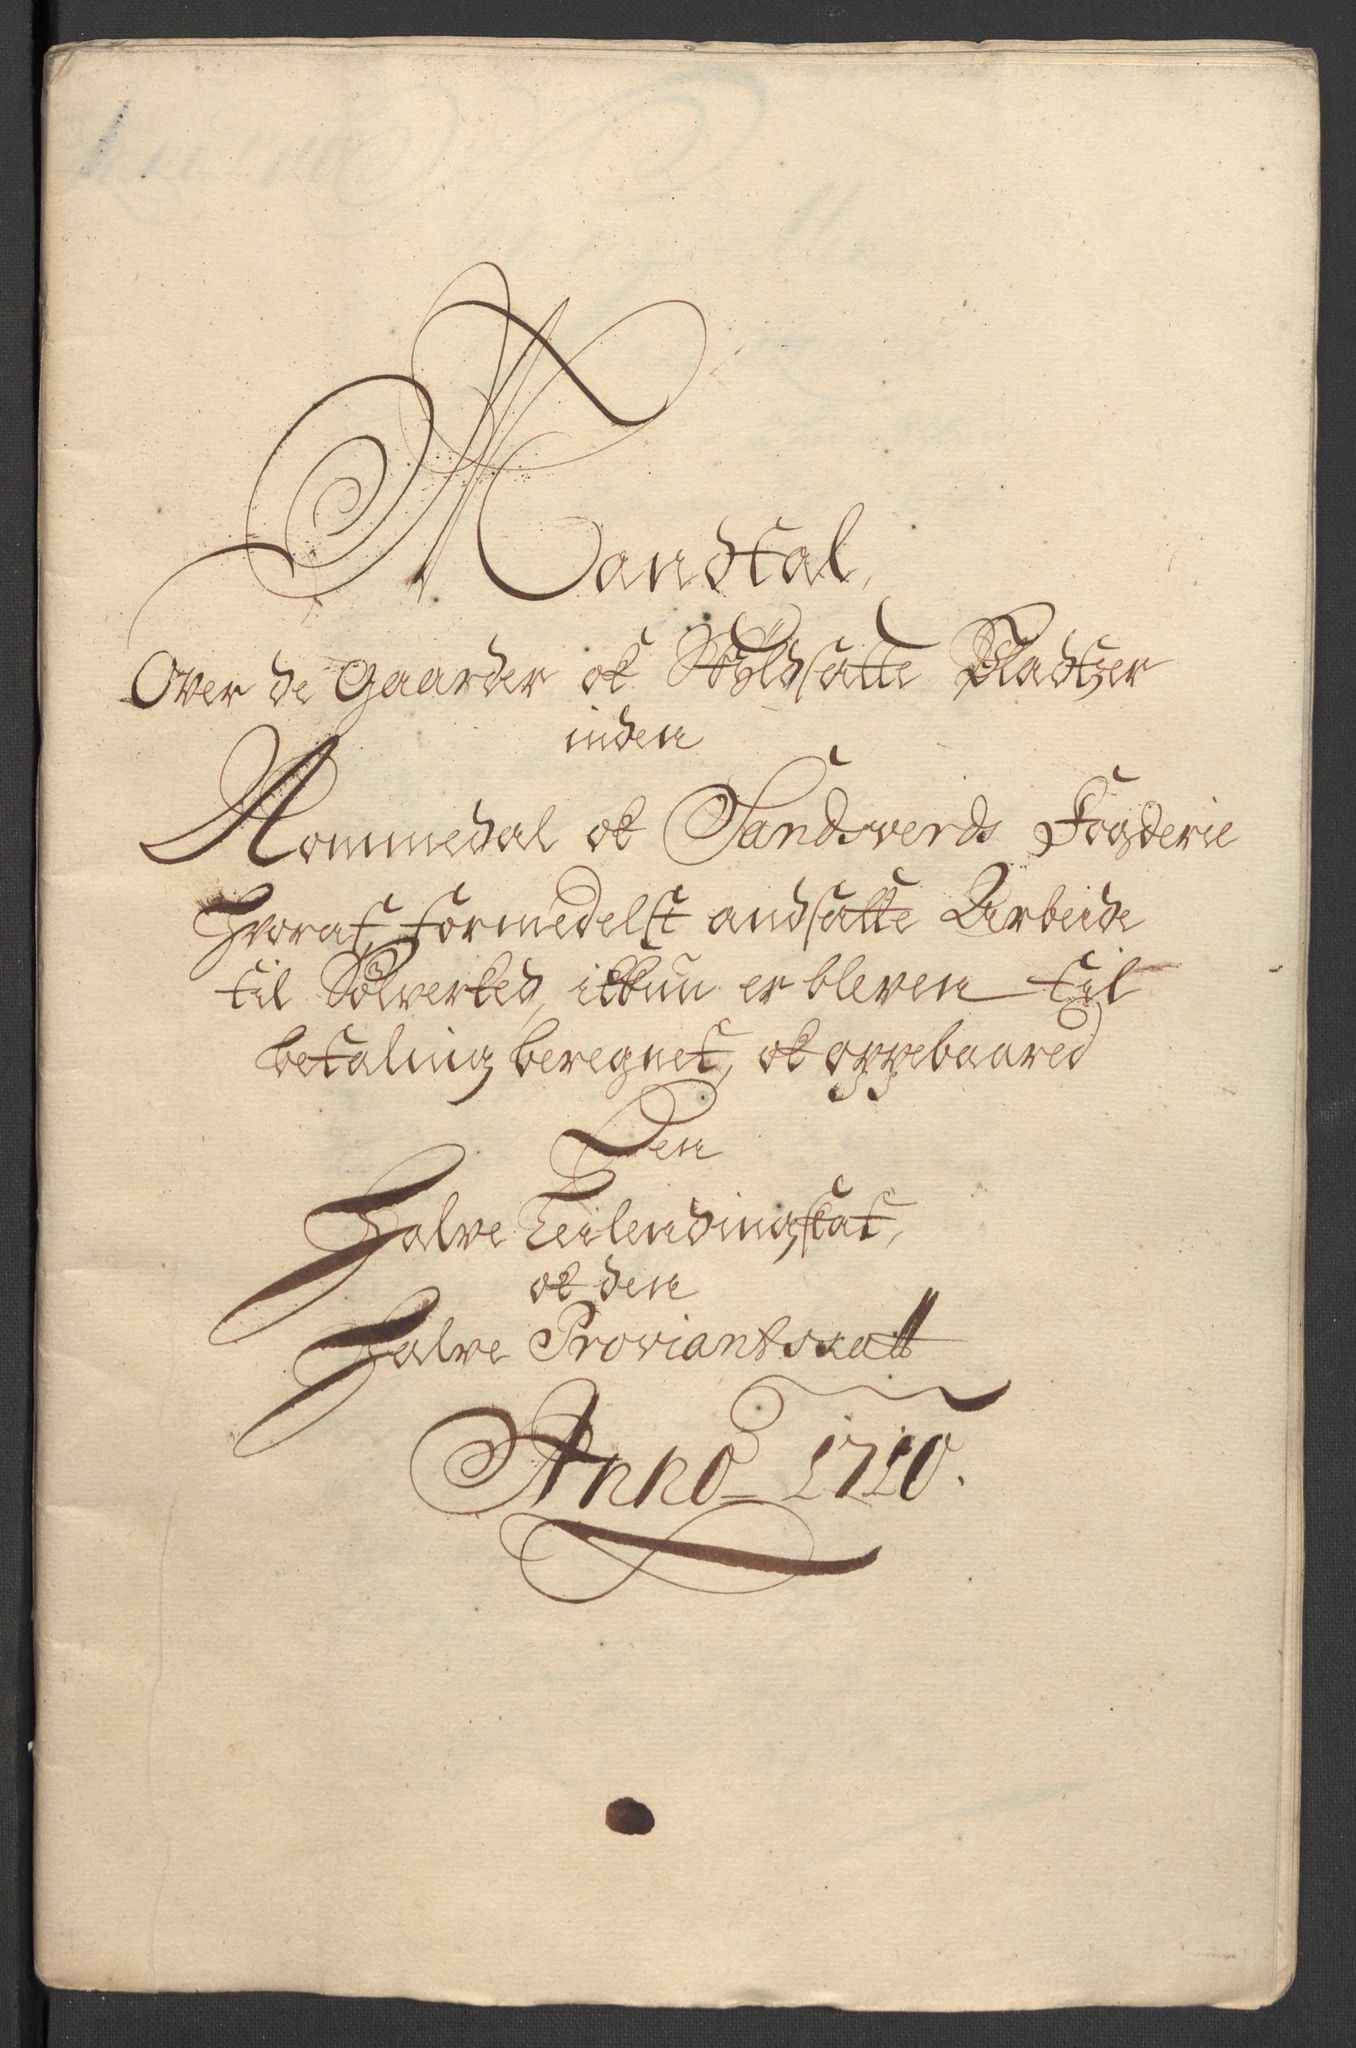 Mandtal,
Over de Gaarder ok Skyldsatte Pladtzer
inden
Nommedal ok Sandsverds Fogderie
Hvoraf, formedelst andsatte Arbeide
til Sølverked, ikkun er bleven til
betaling beregnet, ok oppebaared
Den
Halve Leilendingskat,
ok den
Halve Proviantskatt
Anno 1710.